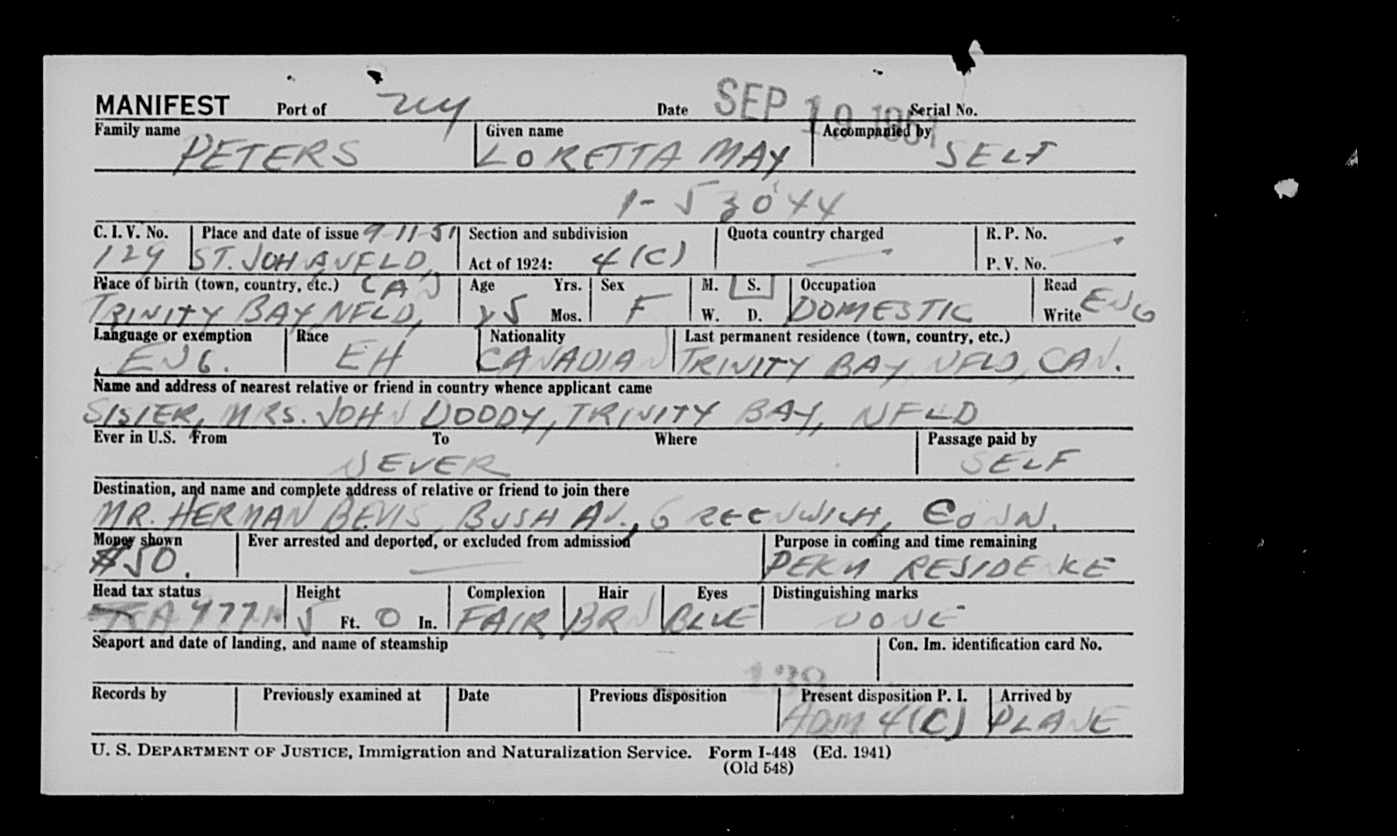 MANIFEST Port of NY Date SEP 19 1951 Serial No.
Family name Given name Accompanied by
PETERS LORETTA MAY SELF
1-53044
C. I. V. No. Place and date of issue 9-11-51 Section and subdivision Quota country charged R. P. No.
129 ST. JOHNS NFLD, Act of 1924: 4(C) — P. V. No.
CAN
Place of birth (town, country, etc.) Age Yrs. Sex M. S. Occupation Read
TRINITY BAY, NFLD, Mos. F W. D. DOMESTIC Write ENG
Language or exemption Race Nationality Last permanent residence (town, country, etc.)
ENG. EH CANADIAN TRINITY BAY, NFLD, CAN.
Name and address of nearest relative or friend in country whence applicant came
SISTER, MRS. JOHN DODDY, TRINITY BAY, NFLD
Ever in U.S. From To Where Passage paid by
NEVER SELF
Destination, and name and complete address of relative or friend to join there
MR. HERMAN BEVIS, BUSH AV., GREENWICH, CONN.
Money shown Ever arrested and deported, or excluded from admission Purpose in coming and time remaining
$50. — PERM RESIDENCE
Head tax status Height Complexion Hair Eyes Distinguishing marks
5 Ft. 0 In. FAIR BRN BLUE NONE
Seaport and date of landing, and name of steamship Con. Im. identification card No.
139
Records by Previously examined at Date Previous disposition Present disposition P. I. Arrived by
ADM 4(C) PLANE
U. S. DEPARTMENT OF JUSTICE, Immigration and Naturalization Service. Form I-448 (Ed. 1941)
(Old 548)